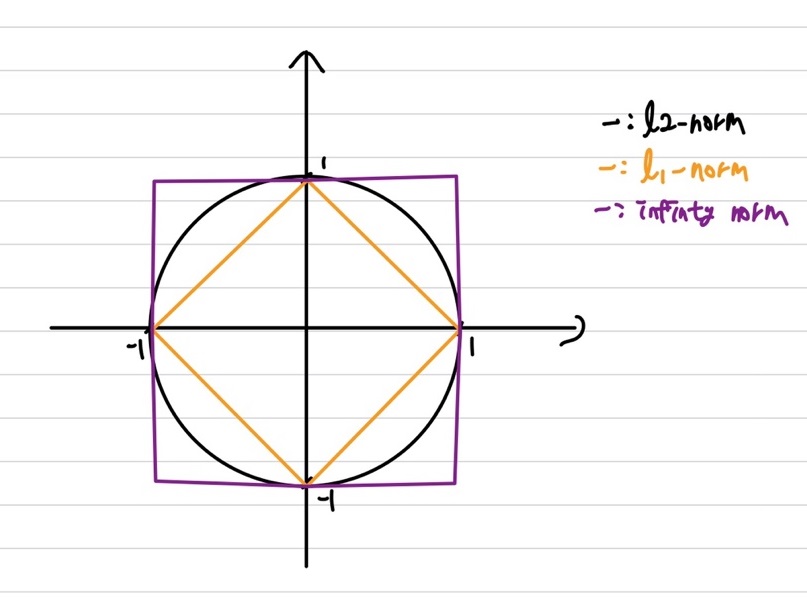 1
-1
1
-1
-: l2-norm
-: l₁-norm
-: infinty norm